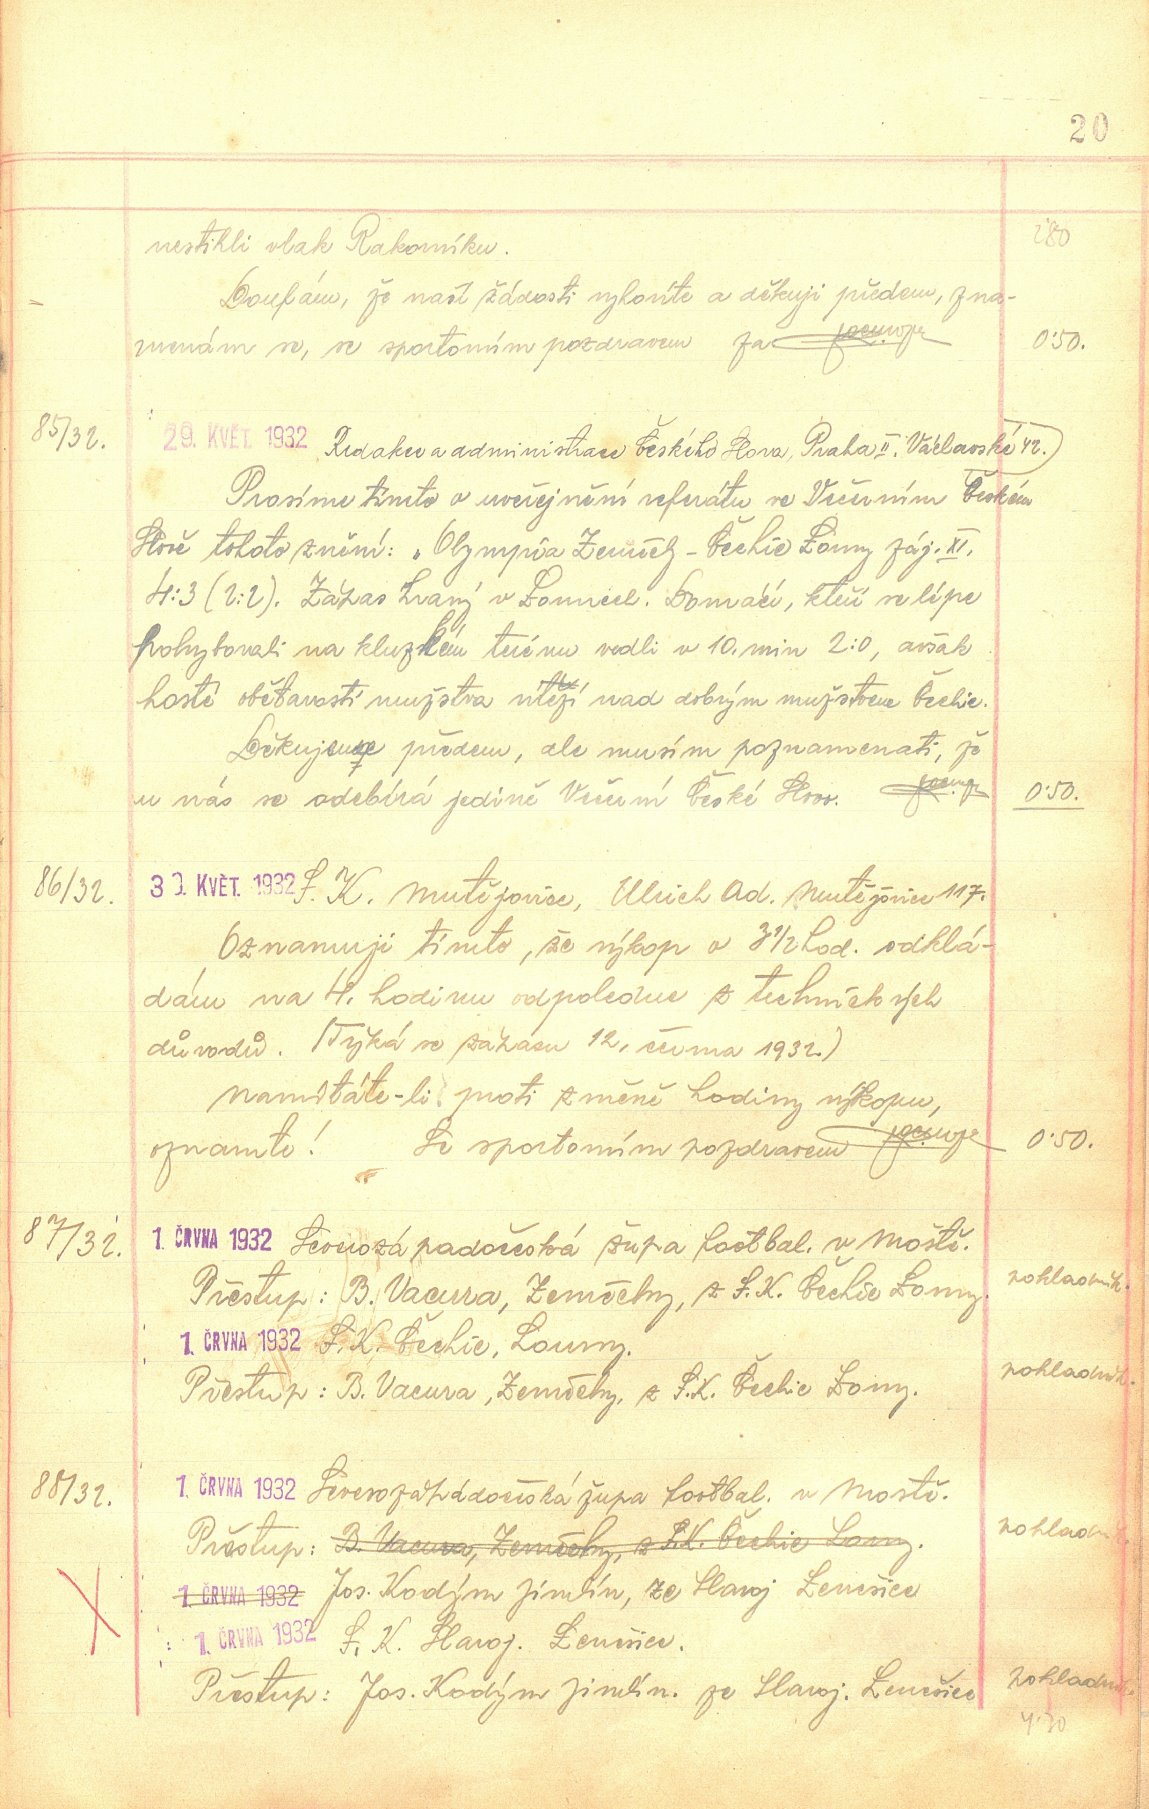 20
nestihli vlak Rakovníku. 2·80
Doufám, že naší žádosti vyhovíte a děkuji předem, zna-
menám se, se sportovním pozdravem za 0·50.
85/32. 29. KVĚT. 1932 Redakce a administrace Českého Slova, Praha II. Václavské 42.
Prosíme tímto o uveřejnění referátu ve Večerním Českém
Slově tohoto znění: „Olympia Zeměchy - Čechie Louny záj. XI.
4:3 (2:2). Zápas hraný v Lounech. Domácí, kteří se lépe
pohybovali na kluzkém terénu vedli v 10. min 2:0, avšak
hosté obětavostí mužstva vítězí nad dobrým mužstvem Čechie.
Děkujeme předem, ale musím poznamenati, že
u nás se odebírá jedině Večerní České Slovo. 0·50.
86/32. 30. KVĚT. 1932 S. K. Mutějovice, Ulrich Ad. Mutějovice 117.
Oznamuji tímto, že výkop o 3 1/2 hod. odklá-
dám na 4. hodinu odpoledne z technických
důvodů. (Týká se zápasu 12. června 1932.)
Namítáte-li proti změně hodiny výkopu,
oznamte! Se sportovním pozdravem 0·50.
87/32. 1. ČRVNA 1932 Severozápadočeská župa footbal. v Mostě.
Přestup: B. Vacura, Zeměchy, z S.K. Čechie Louny. pohladnik.
1. ČRVNA 1932 S. K. Čechie, Louny.
Přestup: B. Vacura, Zeměchy, z S.K. Čechie Louny. pohladnik.
88/32. 1. ČRVNA 1932 Severozápadočeská župa footbal. v Mostě.
Přestup: B. Vacura, Zeměchy, z S.K. Čechie Louny. pohladn
1. ČRVNA 1932 Jos. Kodým Jimlín, ze Slavoj Lenešice
1. ČRVNA 1932 S. K. Slavoj. Lenešice.
Přestup: Jos. Kodým Jimlín. ze Slavoj. Lenešice pohladnik.
4·30